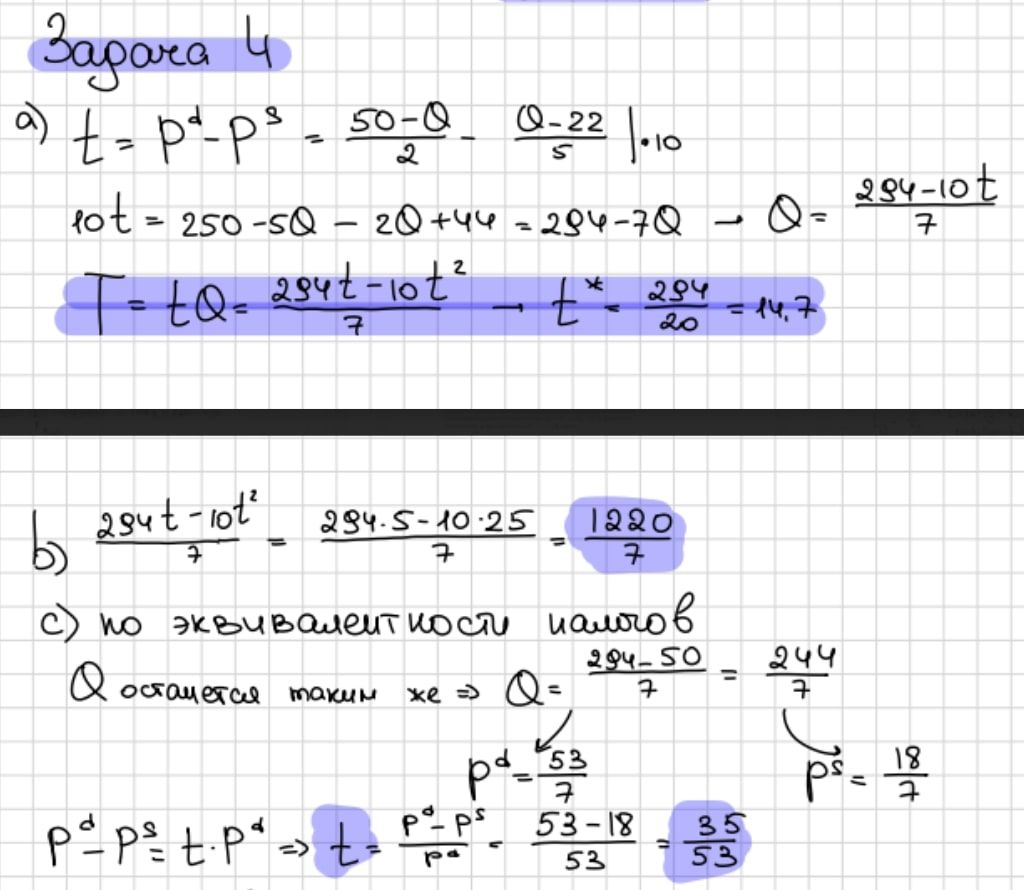 Задача 4
a) t = P^d - P^s = (50-Q)/2 - (Q-22)/5 | ·10
10t = 250 - 5Q - 2Q + 44 = 294 - 7Q → Q = (294-10t)/7
T = tQ = (294t - 10t²)/7 → t* = 294/20 = 14,7
b) (294t - 10t²)/7 = (294·5 - 10·25)/7 = 1220/7
c) по эквивалентности налогов
Q останется таким же ⇒ Q = (294-50)/7 = 244/7
P^d = 53/7 P^s = 18/7
P^d - P^s = t·P^d ⇒ t = (P^d - P^s)/P^d = (53-18)/53 = 35/53